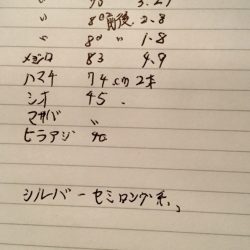 〃 90 3.27
〃 80前後 2.8
〃 80 〃 1.8
メジロ 83 4.9
ハマチ 74cm 2本
シオ 45.
マサバ 〃
ヒラアジ 40
シルバーセミロング系、